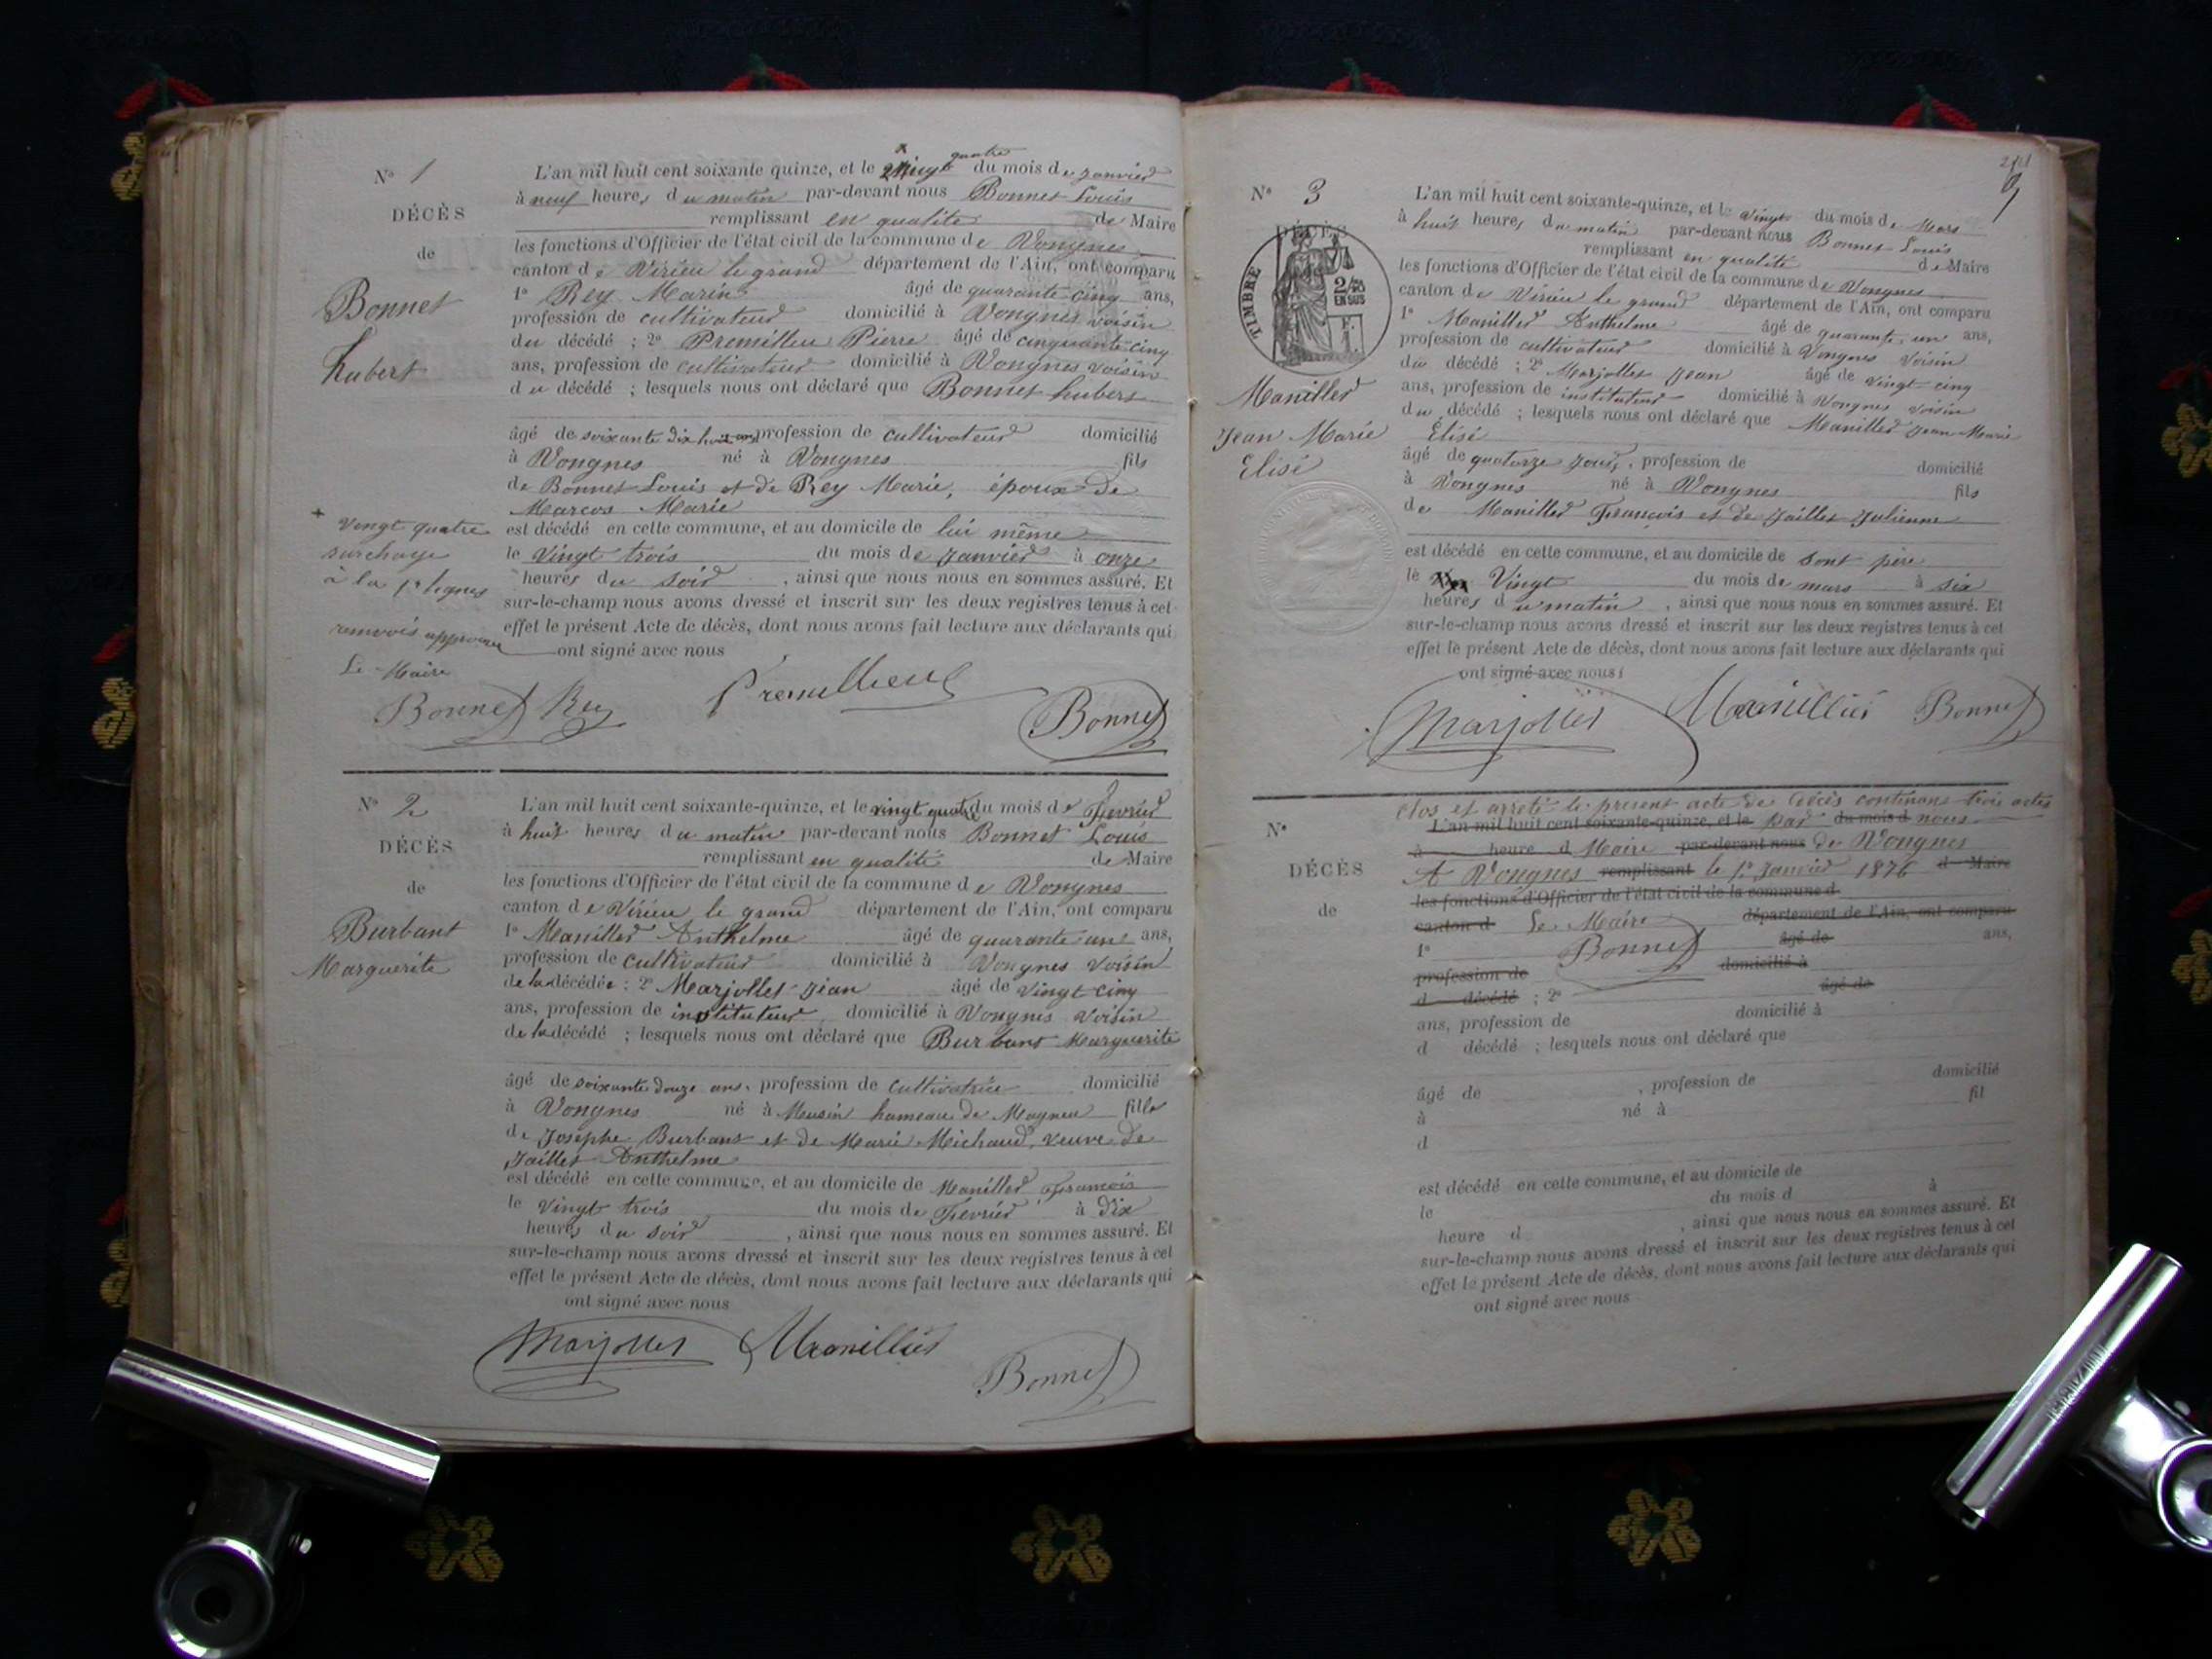 N° 1
DÉCÈS
de
Bonnet
hubert
L'an mil huit cent soixante quinze, et le vingt quatre du mois de janvier
à neuf heures du matin par-devant nous Bonnet Louis
remplissant en qualité de Maire
les fonctions d'Officier de l'état civil de la commune de Vongnes
canton de Virieu le grand département de l'Ain, ont comparu
1° Rey Marin âgé de quarante cinq ans,
profession de cultivateur domicilié à Vongnes voisin
du décédé ; 2° Premillieu Pierre âgé de cinquante cinq
ans, profession de cultivateur domicilié à Vongnes voisin
du décédé ; lesquels nous ont déclaré que Bonnet hubert
âgé de soixante dix huit ans profession de cultivateur domicilié
à Vongnes né à Vongnes fils
de Bonnet Louis et de Rey Marie, époux de
Marcos Marie
est décédé en cette commune, et au domicile de lui même
le vingt trois du mois de janvier à onze
heures du soir , ainsi que nous nous en sommes assuré. Et
sur-le-champ nous avons dressé et inscrit sur les deux registres tenus à cet
effet le présent Acte de décès, dont nous avons fait lecture aux déclarants qui
ont signé avec nous
+ vingt quatre
surchage
à la 1re lignes
renvois approuvé
Le Maire
Bonnet Rey Premillieu Bonnet
N° 2
DÉCÈS
de
Burbant
Marguerite
L'an mil huit cent soixante-quinze, et le vingt quatre du mois de Fevrier
à huit heures du matin par-devant nous Bonnet Louis
remplissant en qualité de Maire
les fonctions d'Officier de l'état civil de la commune de Vongnes
canton de Virieu le grand département de l'Ain, ont comparu
1° Manillier Anthelme âgé de quarante un ans,
profession de cultivateur domicilié à Vongnes voisin
de la décédée ; 2° Marjollet Jean âgé de vingt cinq
ans, profession de instituteur domicilié à Vongnes voisin
de la décédé ; lesquels nous ont déclaré que Burbant Marguerite
âgé de soixante douze ans, profession de cultivatrice domicilié
à Vongnes né à Musin hameau de Magneu fille
de Josephe Burbant et de Marie Michaud, veuve de
Jaillet Anthelme
est décédé en cette commune, et au domicile de Manillier François
le vingt trois du mois de Fevrier à dix
heures du soir , ainsi que nous nous en sommes assuré. Et
sur-le-champ nous avons dressé et inscrit sur les deux registres tenus à cet
effet le présent Acte de décès, dont nous avons fait lecture aux déclarants qui
ont signé avec nous
Marjollet Manillier
Bonnet
N° 3
DÉCÈS
TIMBRE
2/10
EN SUS
Manillier
Jean Marie
Elisé
L'an mil huit cent soixante-quinze, et le vingt du mois de Mars
à huit heures du matin par-devant nous Bonnet Louis
remplissant en qualité de Maire
les fonctions d'Officier de l'état civil de la commune de Vongnes
canton de Virieu le grand département de l'Ain, ont comparu
1° Manillier Anthelme âgé de quarante un ans,
profession de cultivateur domicilié à Vongnes voisin
du décédé ; 2° Marjollet Jean âgé de vingt cinq
ans, profession de instituteur domicilié à Vongnes voisin
du décédé ; lesquels nous ont déclaré que Manillier Jean Marie
Elisé
âgé de quatorze jours, profession de domicilié
à Vongnes né à Vongnes fils
de Manillier François et de Jaillet Julienne
est décédé en cette commune, et au domicile de sont père
le Vingt du mois de mars à six
heures du matin , ainsi que nous nous en sommes assuré. Et
sur-le-champ nous avons dressé et inscrit sur les deux registres tenus à cet
effet le présent Acte de décès, dont nous avons fait lecture aux déclarants qui
ont signé avec nous
Marjollet Manillier Bonnet
N°
DÉCÈS
de
Clos et arreté le present acte de décès contenant trois actes
L'an mil huit cent soixante-quinze, et le par du mois d nous
à heure d Maire par-devant nous de Vongnes
A Vongnes remplissant le 1er Janvier 1876 d Maire
les fonctions d'Officier de l'état civil de la commune d
canton d Le Maire département de l'Ain, ont comparu
1° Bonnet âgé de ans,
profession de domicilié à
d décédé ; 2° âgé de
ans, profession de domicilié à
d décédé ; lesquels nous ont déclaré que
âgé de , profession de domicilié
à né à fil
d
est décédé en cette commune, et au domicile de
le du mois d à
heure d , ainsi que nous nous en sommes assuré. Et
sur-le-champ nous avons dressé et inscrit sur les deux registres tenus à cet
effet le présent Acte de décès, dont nous avons fait lecture aux déclarants qui
ont signé avec nous